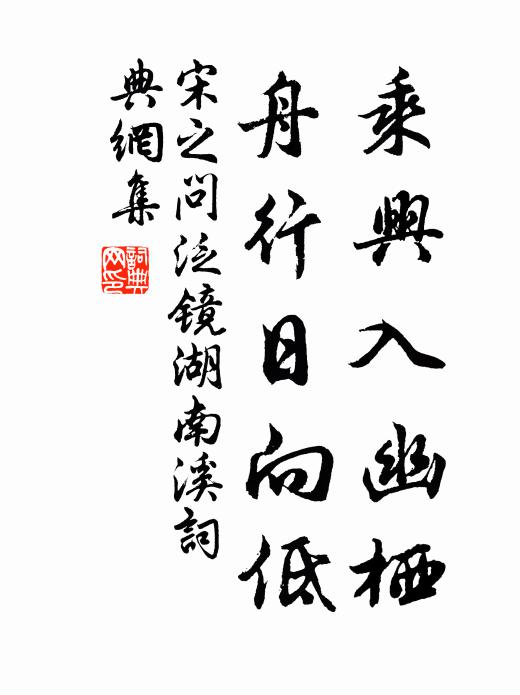 乘興入幽栖
舟行日向低
宋之问泛镜湖南溪詞
典網集
詞典
网印